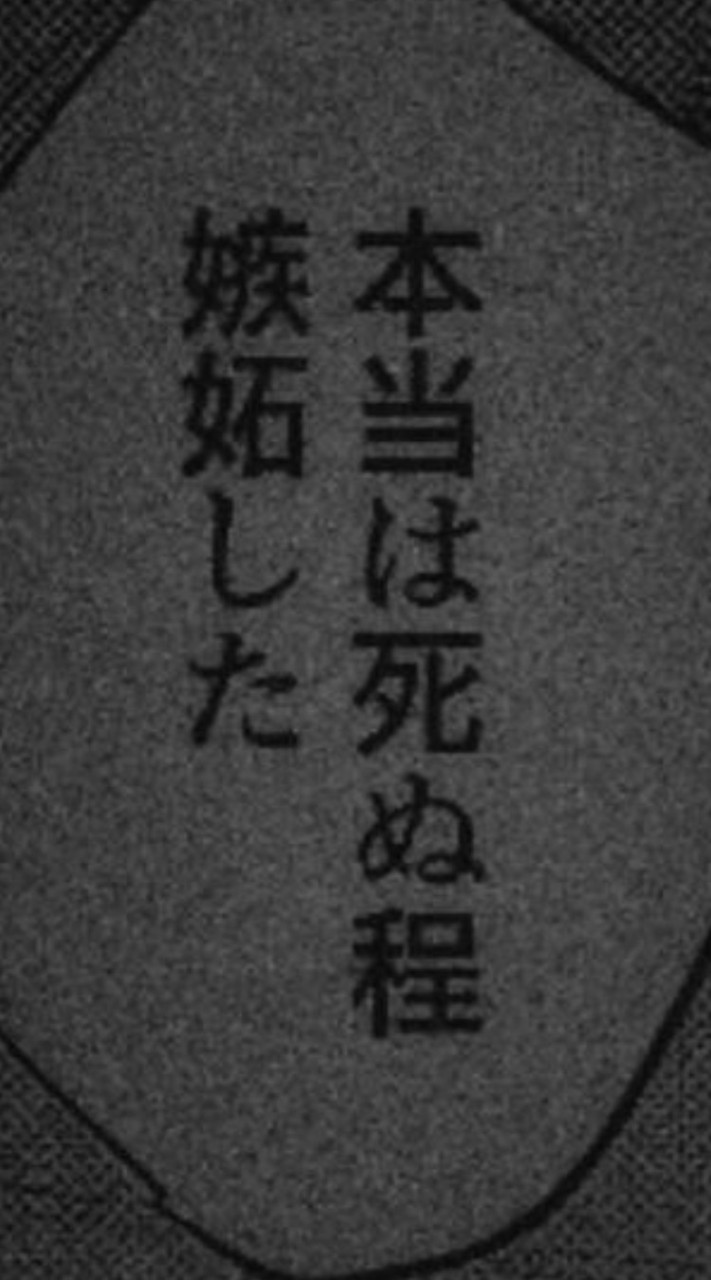 本当は死ぬ程
嫉妬した